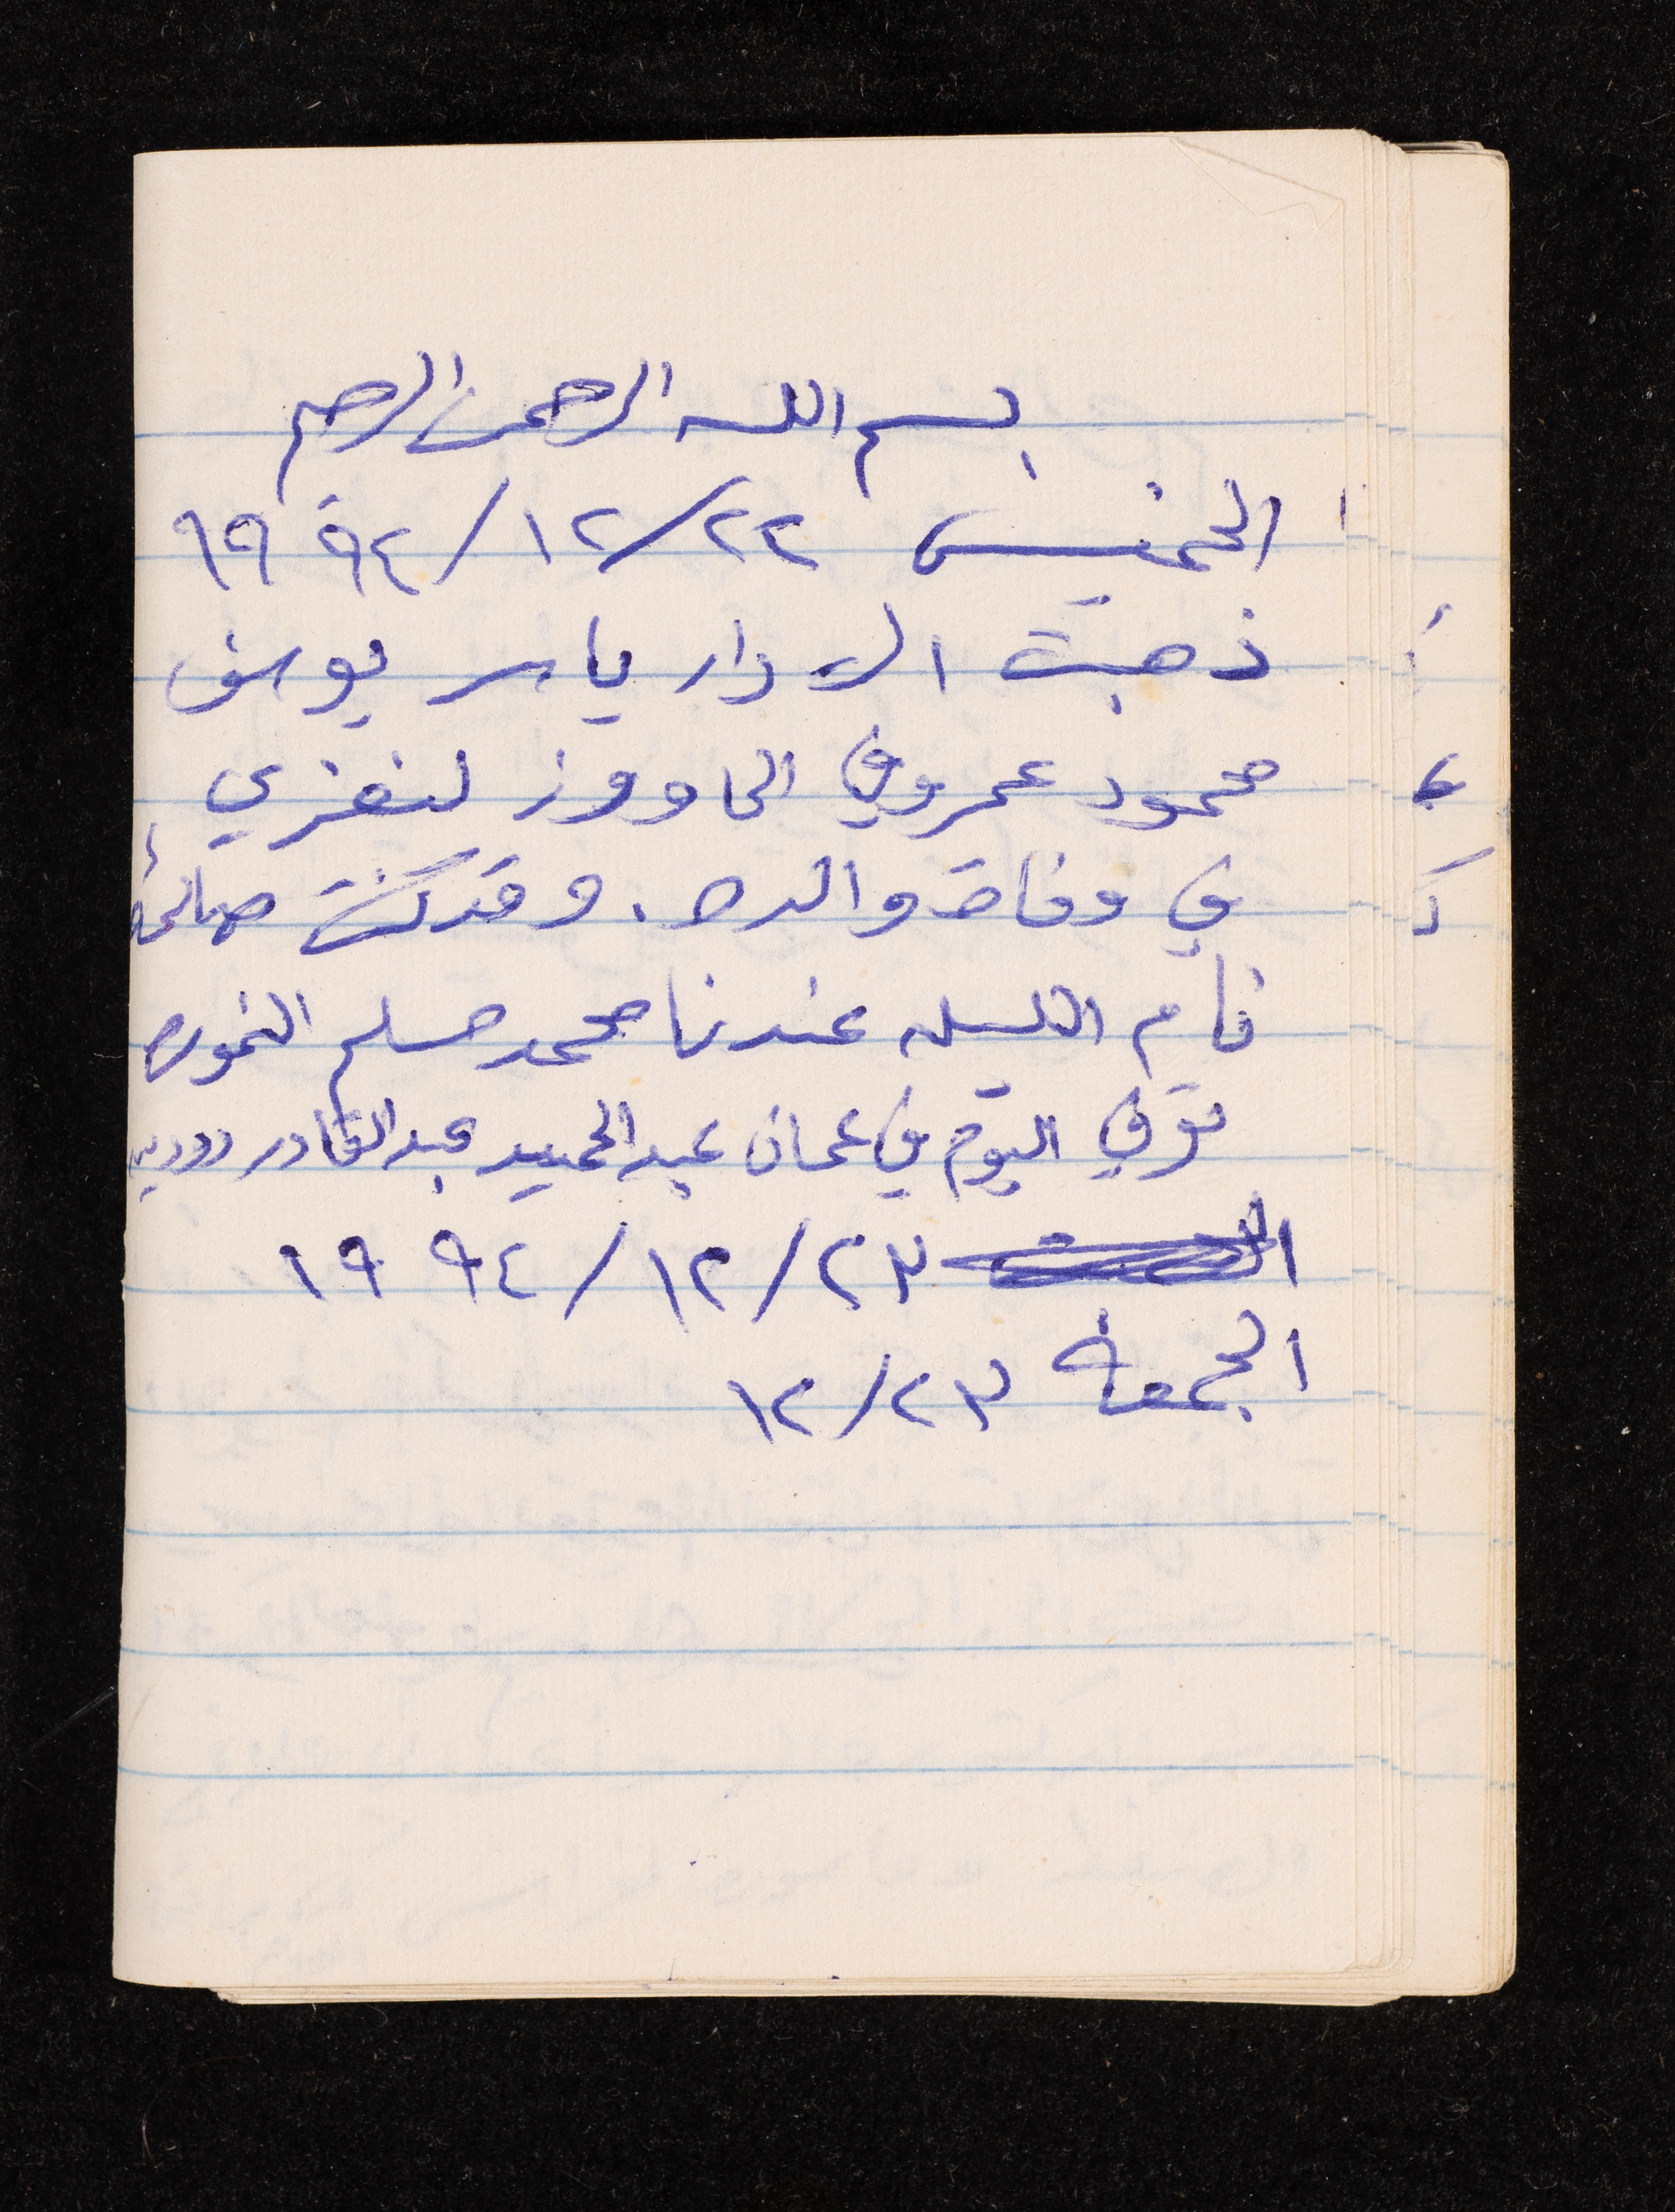 بسم الله الرحمن الرحيم
الخميس ٢٢/١٢/١٩٩٤
ذهبت الى دار ياسر يوسف
محمود عمرو في الى دورا لنعزي
في وفاة والده . وقد كنت صائما
نام الليلة عندنا محمد مسلم النموره
توفي اليوم في عمان عبد الحميد عبد القادر
٢٣/١٢/١٩٩٤
الجمعة ٢٣/١٢